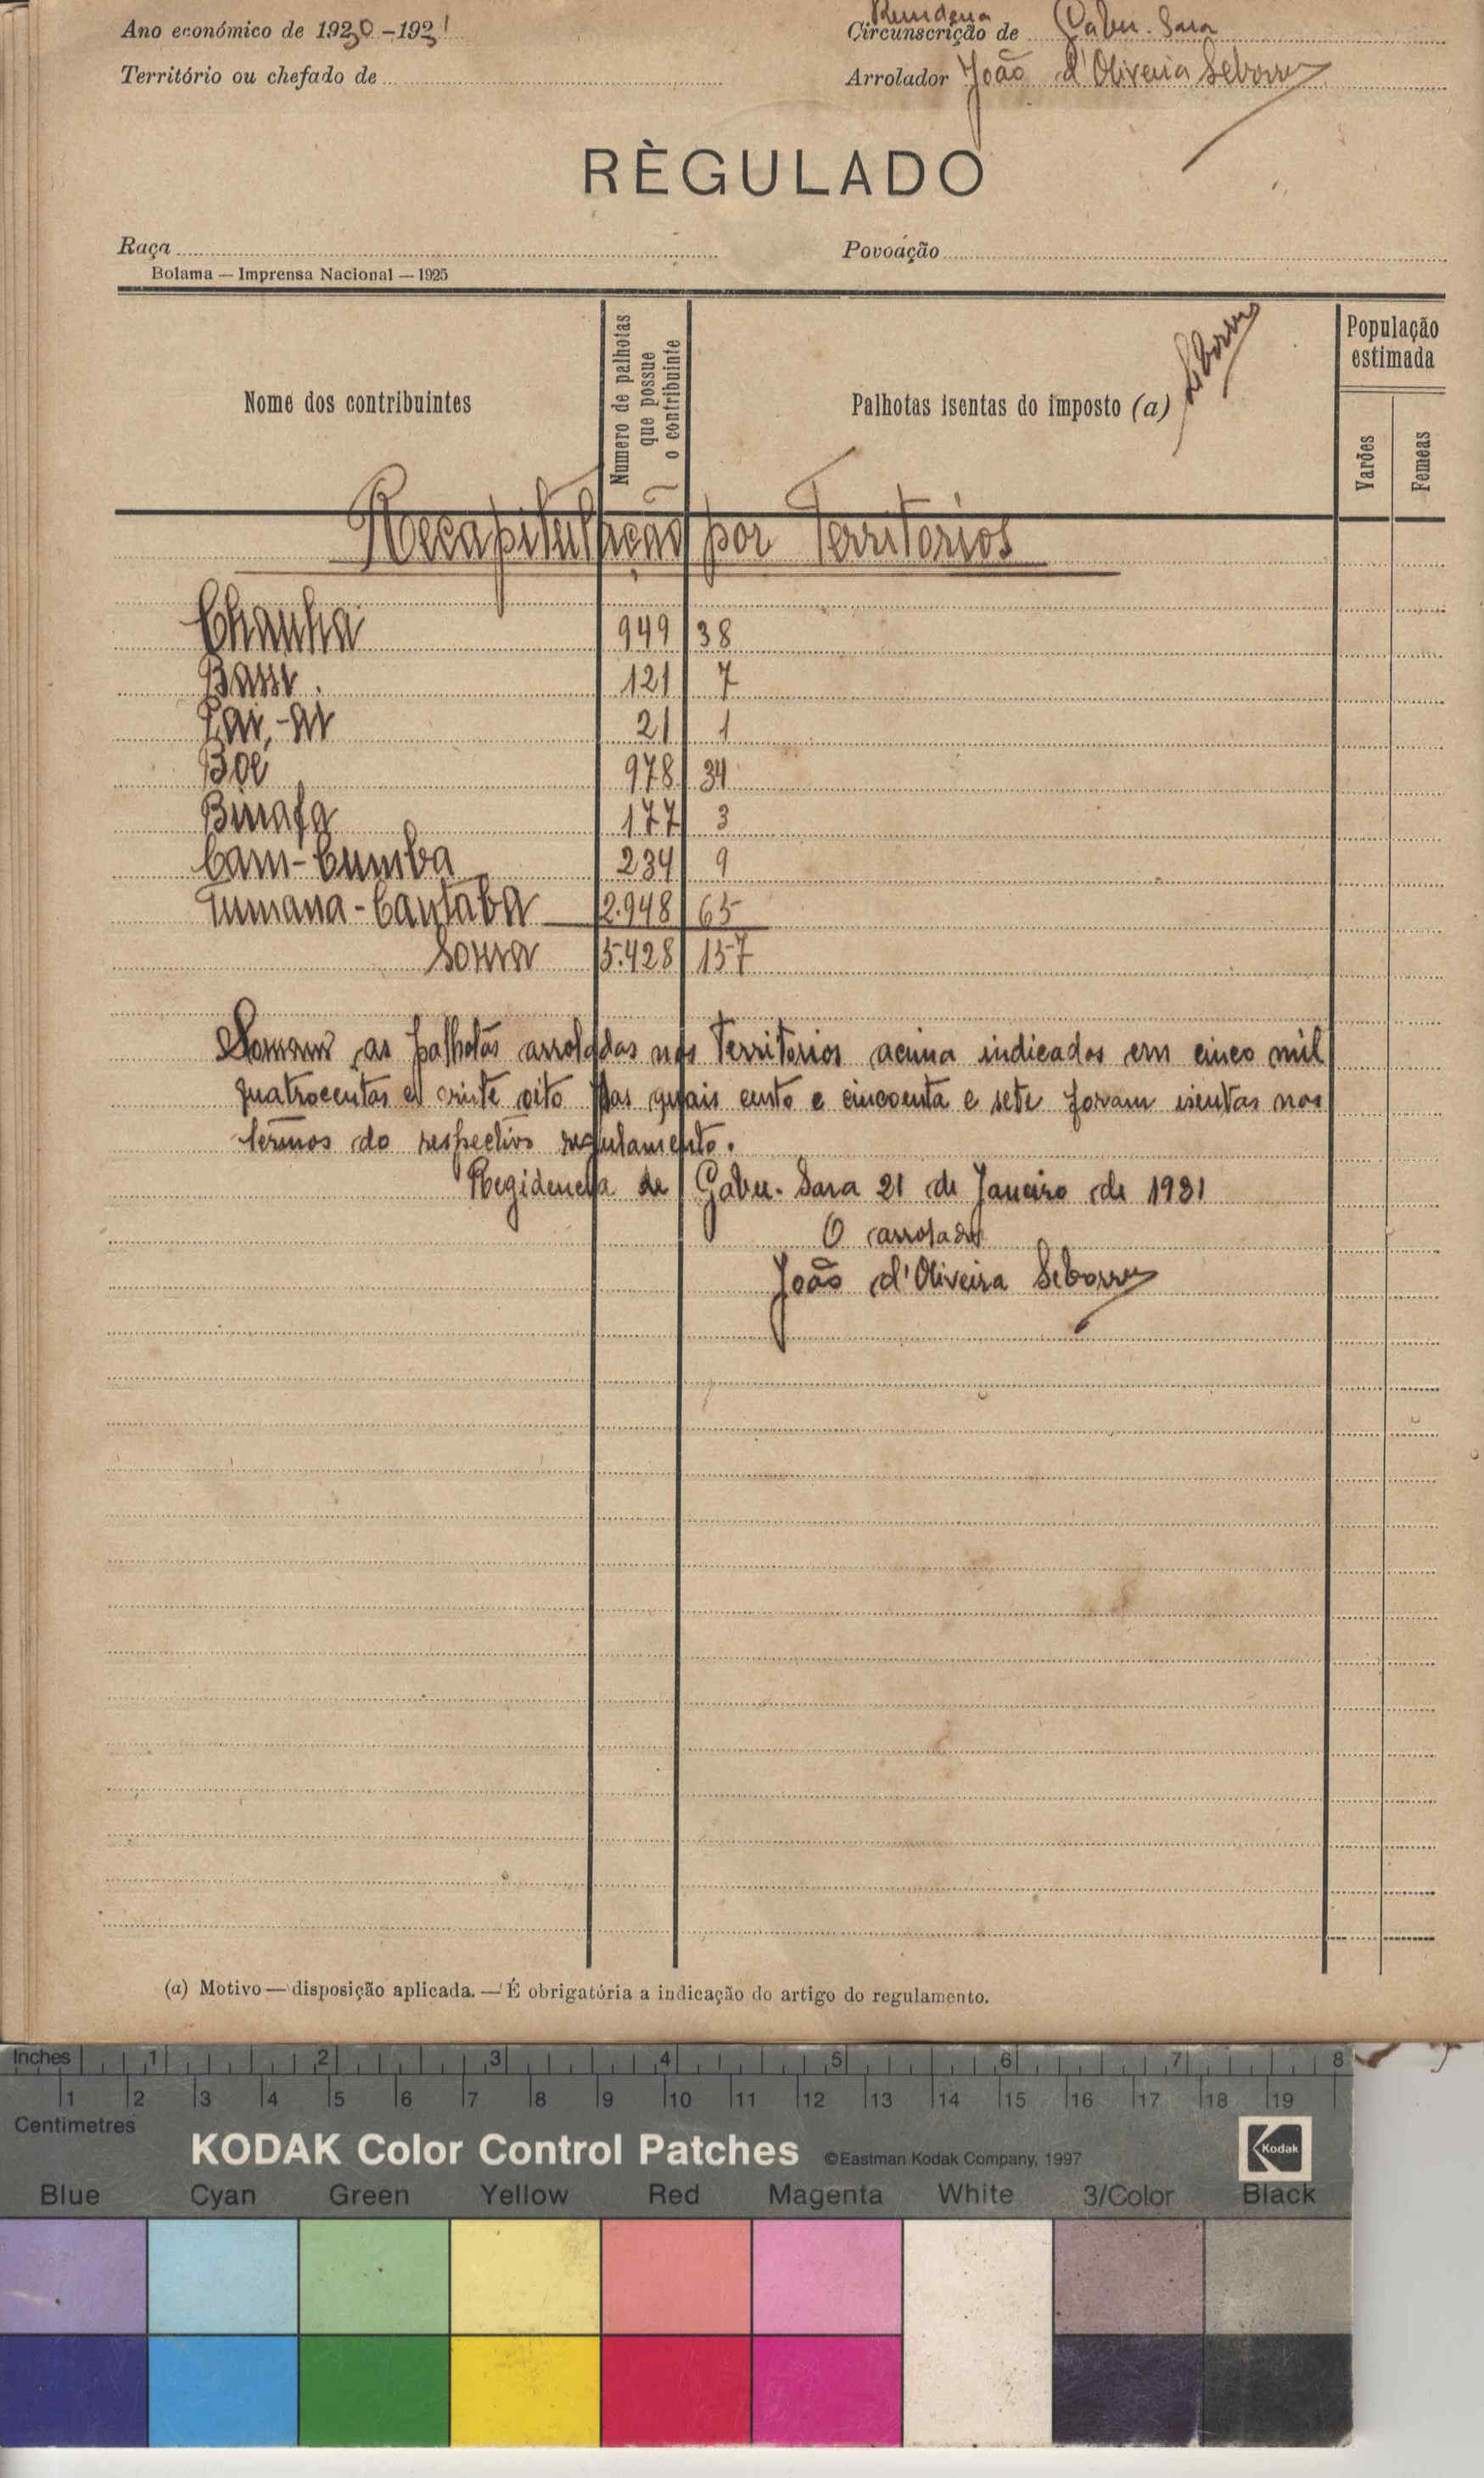 Ano económico de 1930-1931
Circunscrição de Gabu-Sara
Território ou chefado de
Arrolador João d'Oliveira
RÈGULADO
Raça
Povoação
Bolama — Imprensa Nacional — 1925
Nome dos contribuintes
Numero de palhotas que possue o contribuinte
Palhotas isentas do imposto (a)
População estimada
Varões
Femeas
Recapitulação por Territorios
Chanha 949 38
121 7
21 1
Boé 978 34
177 3
234 9
Tumana-Cantaba 2.948 65
Soma 5.428 157
Somam as palhotas arroladas nos Territorios acima indicados em cinco mil
quatrocentas e vinte oito das quais cento e cincoenta e sete foram isentas nos
termos do respectivo regulamento.
Regidencia de Gabu-Sara 21 de Janeiro de 1931
O arrolador
João d'Oliveira
(a) Motivo — disposição aplicada. — É obrigatória a indicação do artigo do regulamento.
Inches 1 2 3 4 5 6 7 8
1 2 3 4 5 6 7 8 9 10 11 12 13 14 15 16 17 18 19
Centimetres
KODAK Color Control Patches ©Eastman Kodak Company, 1997 Kodak
Blue Cyan Green Yellow Red Magenta White 3/Color Black